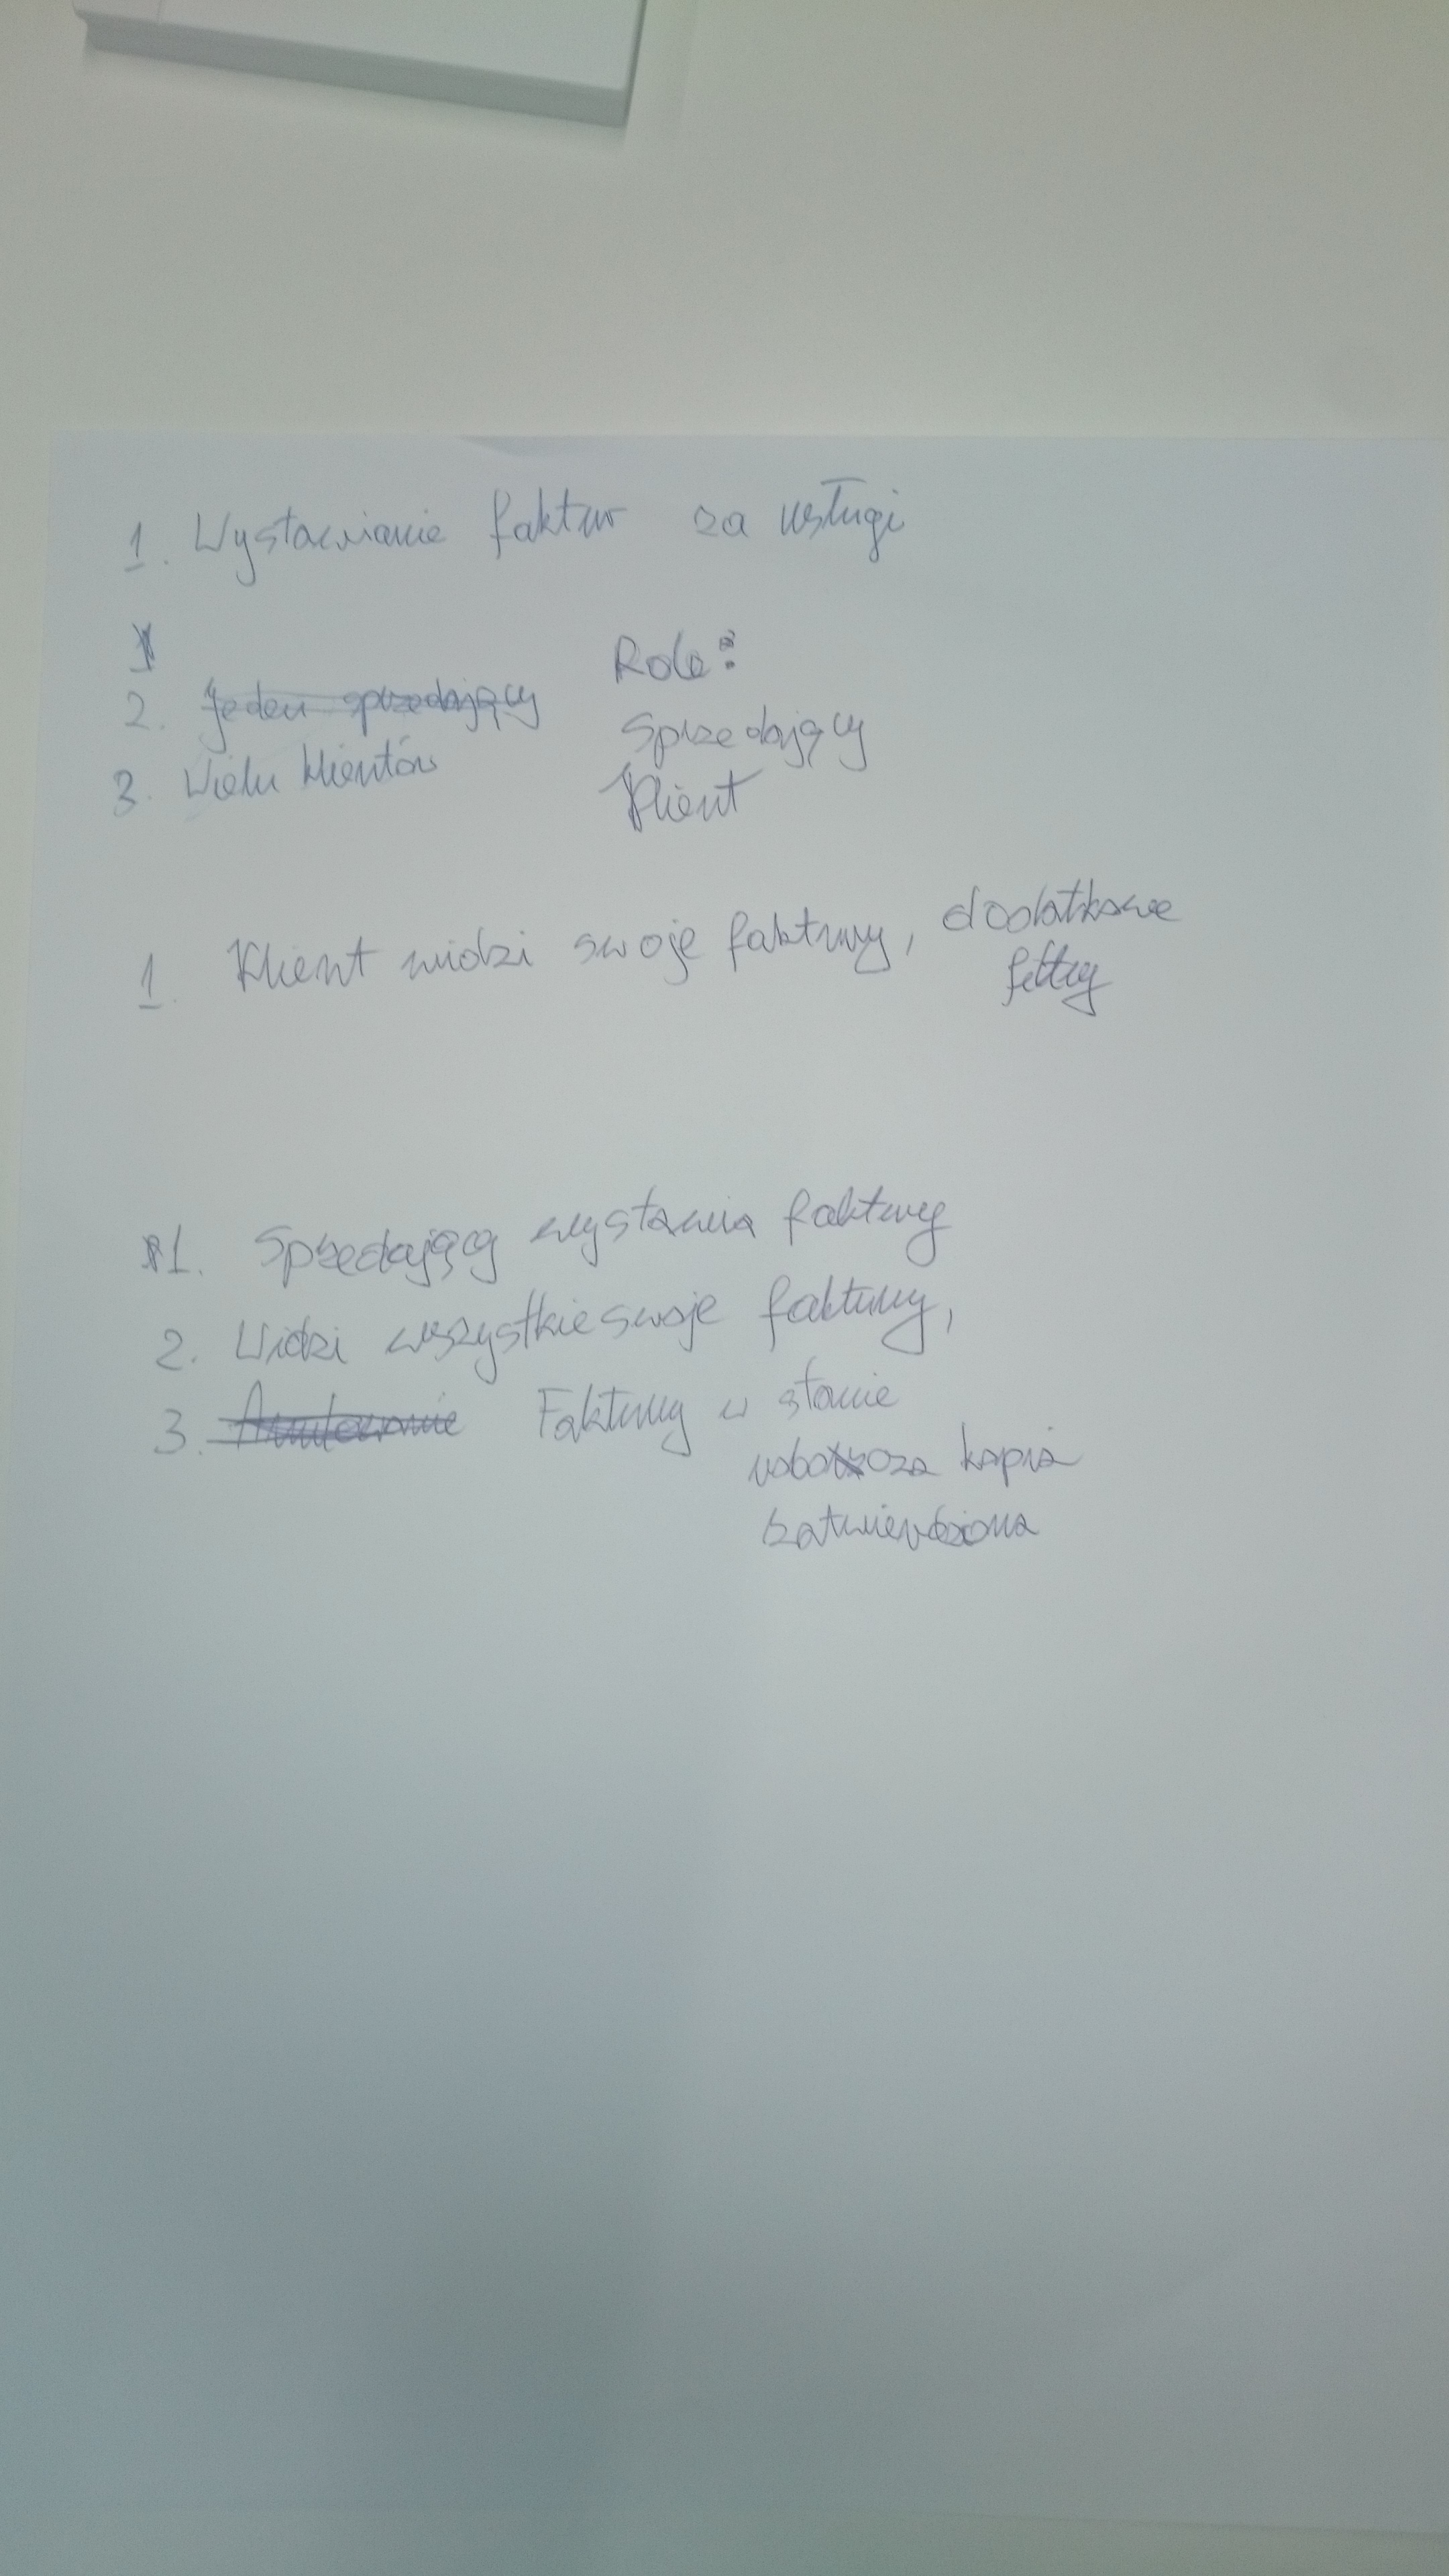 1. Wystawianie faktur za usługi
Role:
2. Jeden sprzedający
Sprzedający
3. Wielu klientów
Klient
1. Klient widzi swoje faktury, dodatkowe
filtry
1. Sprzedający wystawia faktury
2. Widzi wszystkie swoje faktury,
3. Faktury w stanie
robocza kopia
zatwierdzona